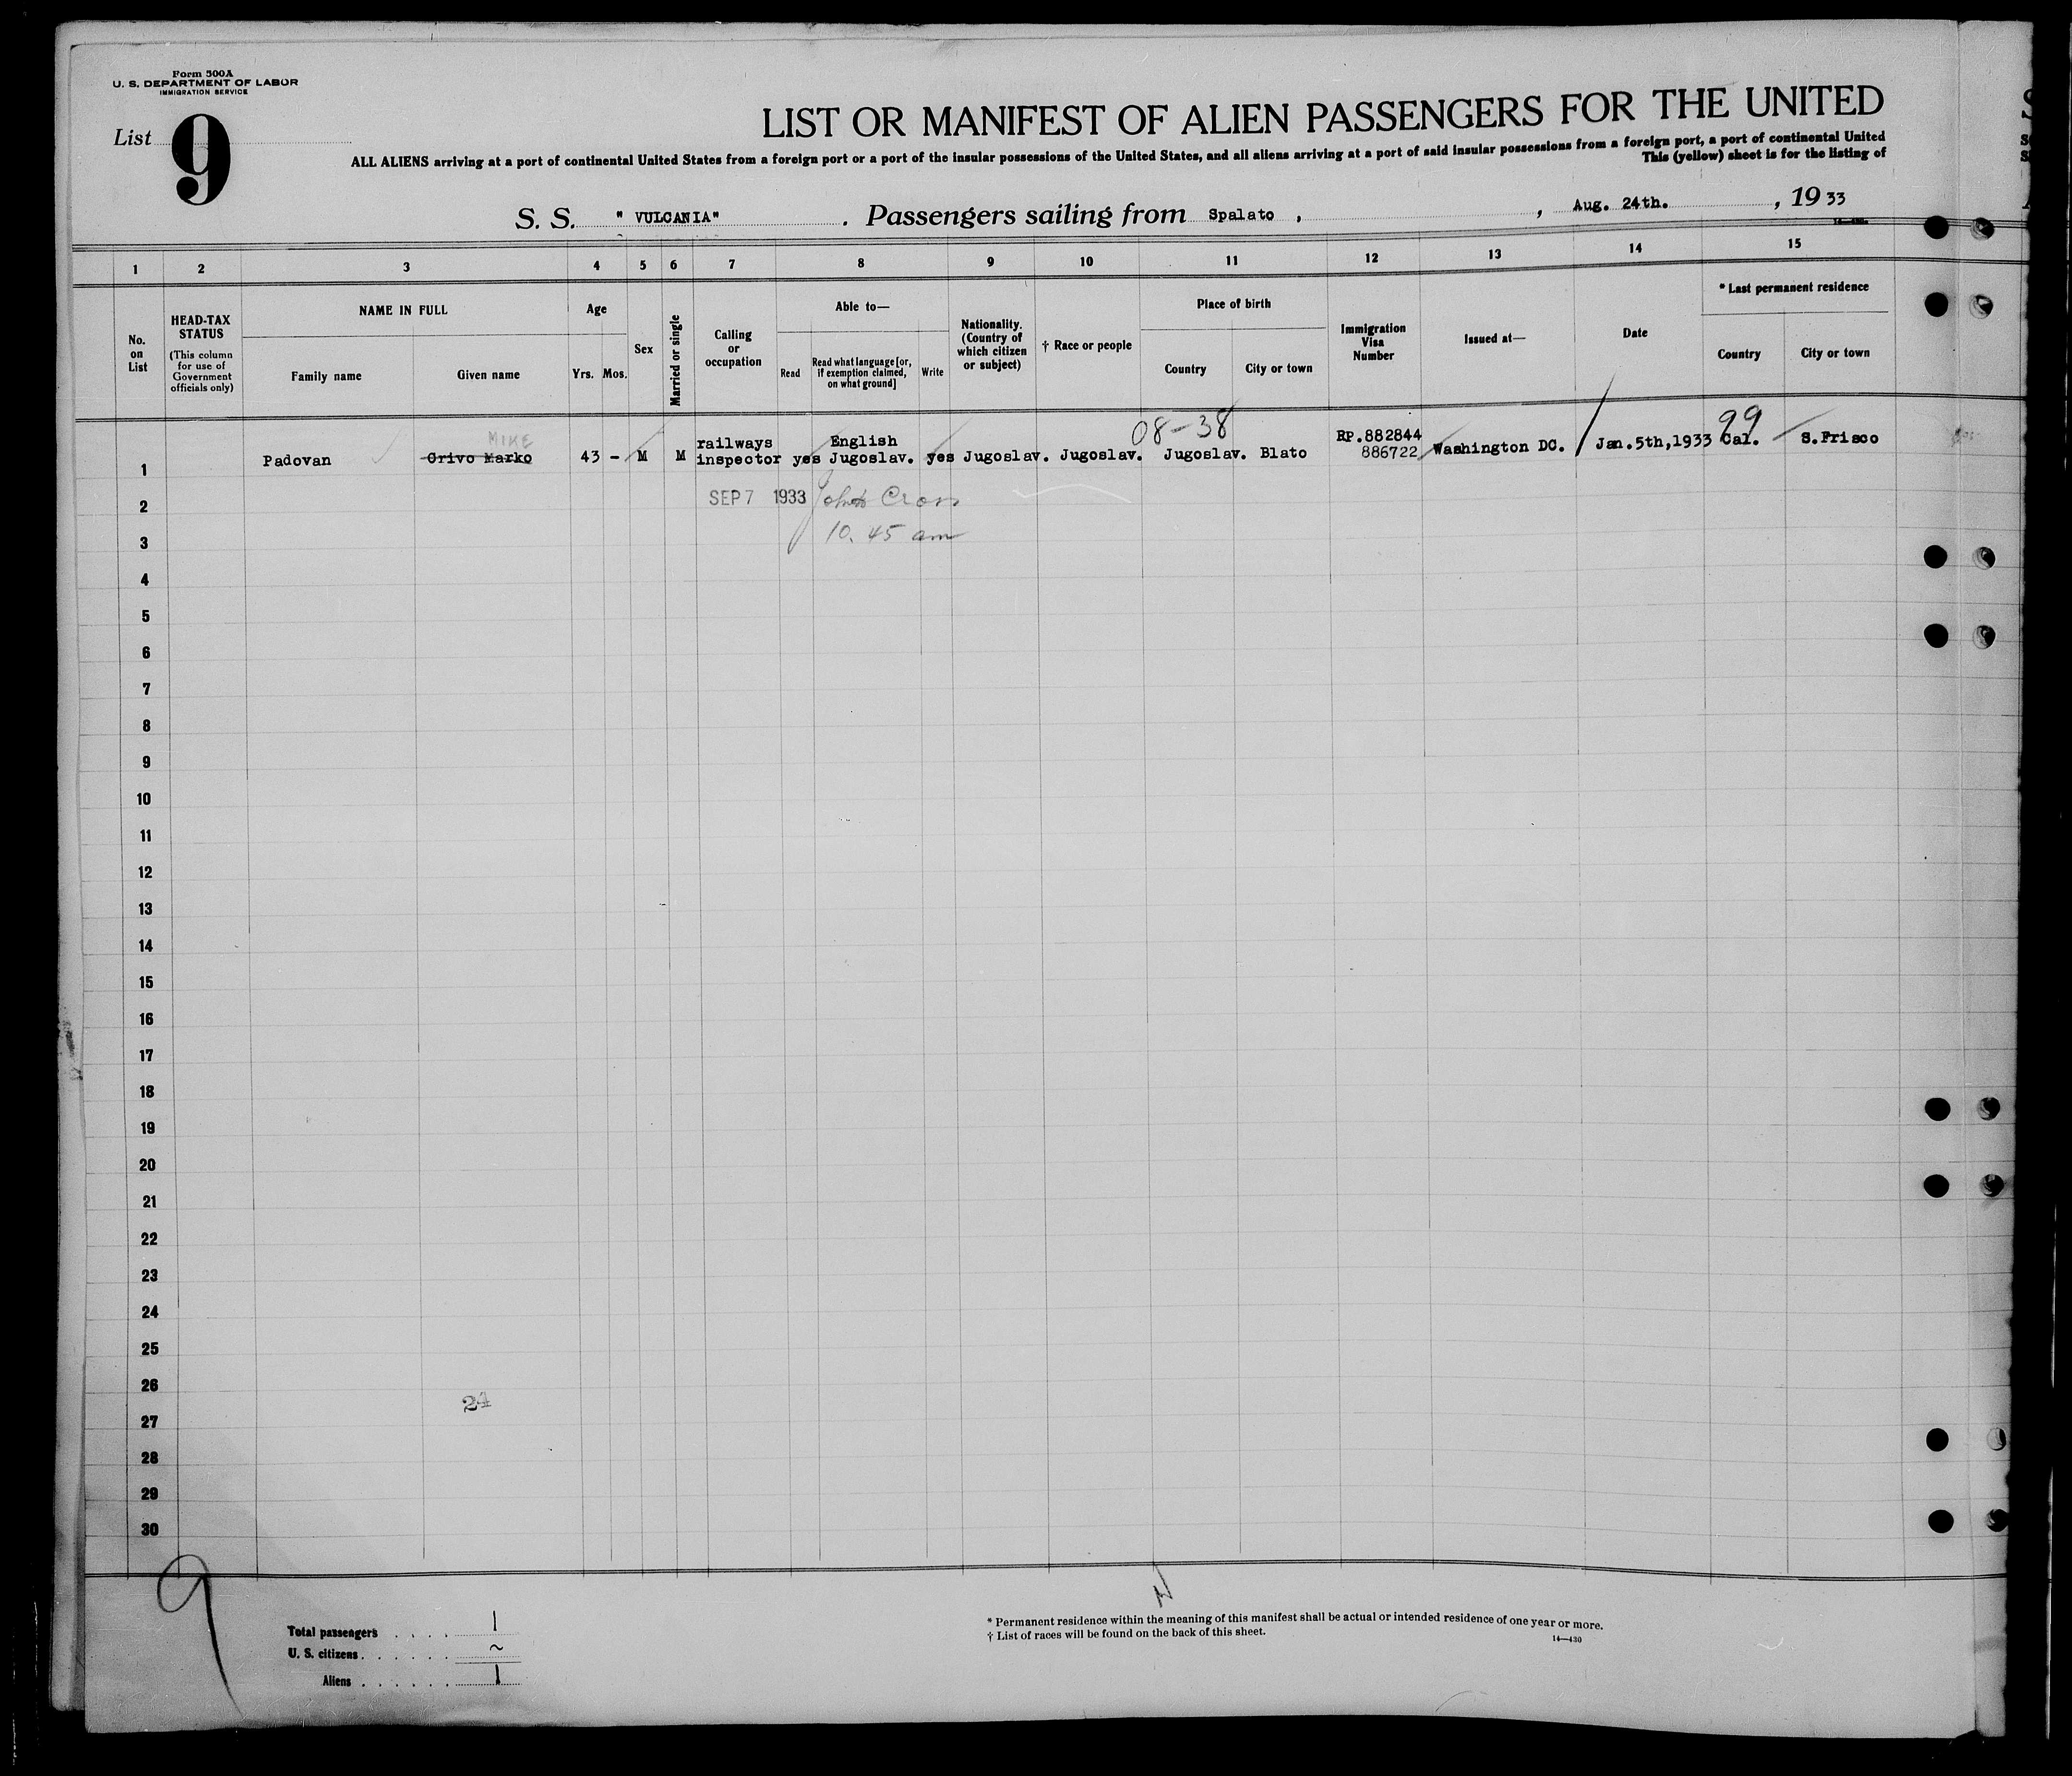 Form 500A
U. S. DEPARTMENT OF LABOR
IMMIGRATION SERVICE
List 9
LIST OR MANIFEST OF ALIEN PASSENGERS FOR THE UNITED
ALL ALIENS arriving at a port of continental United States from a foreign port or a port of the insular possessions of the United States, and all aliens arriving at a port of said insular possessions from a foreign port, a port of continental United
This (yellow) sheet is for the listing of
S. S. " VULCANIA" . Passengers sailing from Spalato , , Aug. 24th. , 19 33
1 2 3 4 5 6 7 8 9 10 11 12 13 14 15
No. on List
HEAD-TAX STATUS
(This column for use of Government officials only)
NAME IN FULL
Family name
Given name
Age
Yrs. Mos.
Sex
Married or single
Calling or occupation
Able to—
Read
Read what language [or, if exemption claimed, on what ground]
Write
Nationality. (Country of which citizen or subject)
† Race or people
Place of birth
Country
City or town
Immigration Visa Number
Issued at—
Date
* Last permanent residence
Country
City or town
MIKE
08-38
99
railways English RP.882844
1 Padovan Grivo Marko 43 - M M inspector yes Jugoslav. yes Jugoslav. Jugoslav. Jugoslav. Blato 886722 Washington DC. Jan.5th,1933 Cal. S.Frisco
2 SEP 7 1933 Cross
3 10. 45 am
4
5
6
7
8
9
10
11
12
13
14
15
16
17
18
19
20
21
22
23
24
25
26
24
27
28
29
30
9
Total passengers . . . . 1
U. S. citizens . . . . . . ~
Aliens . . . . . . 1
* Permanent residence within the meaning of this manifest shall be actual or intended residence of one year or more.
† List of races will be found on the back of this sheet.
14—430